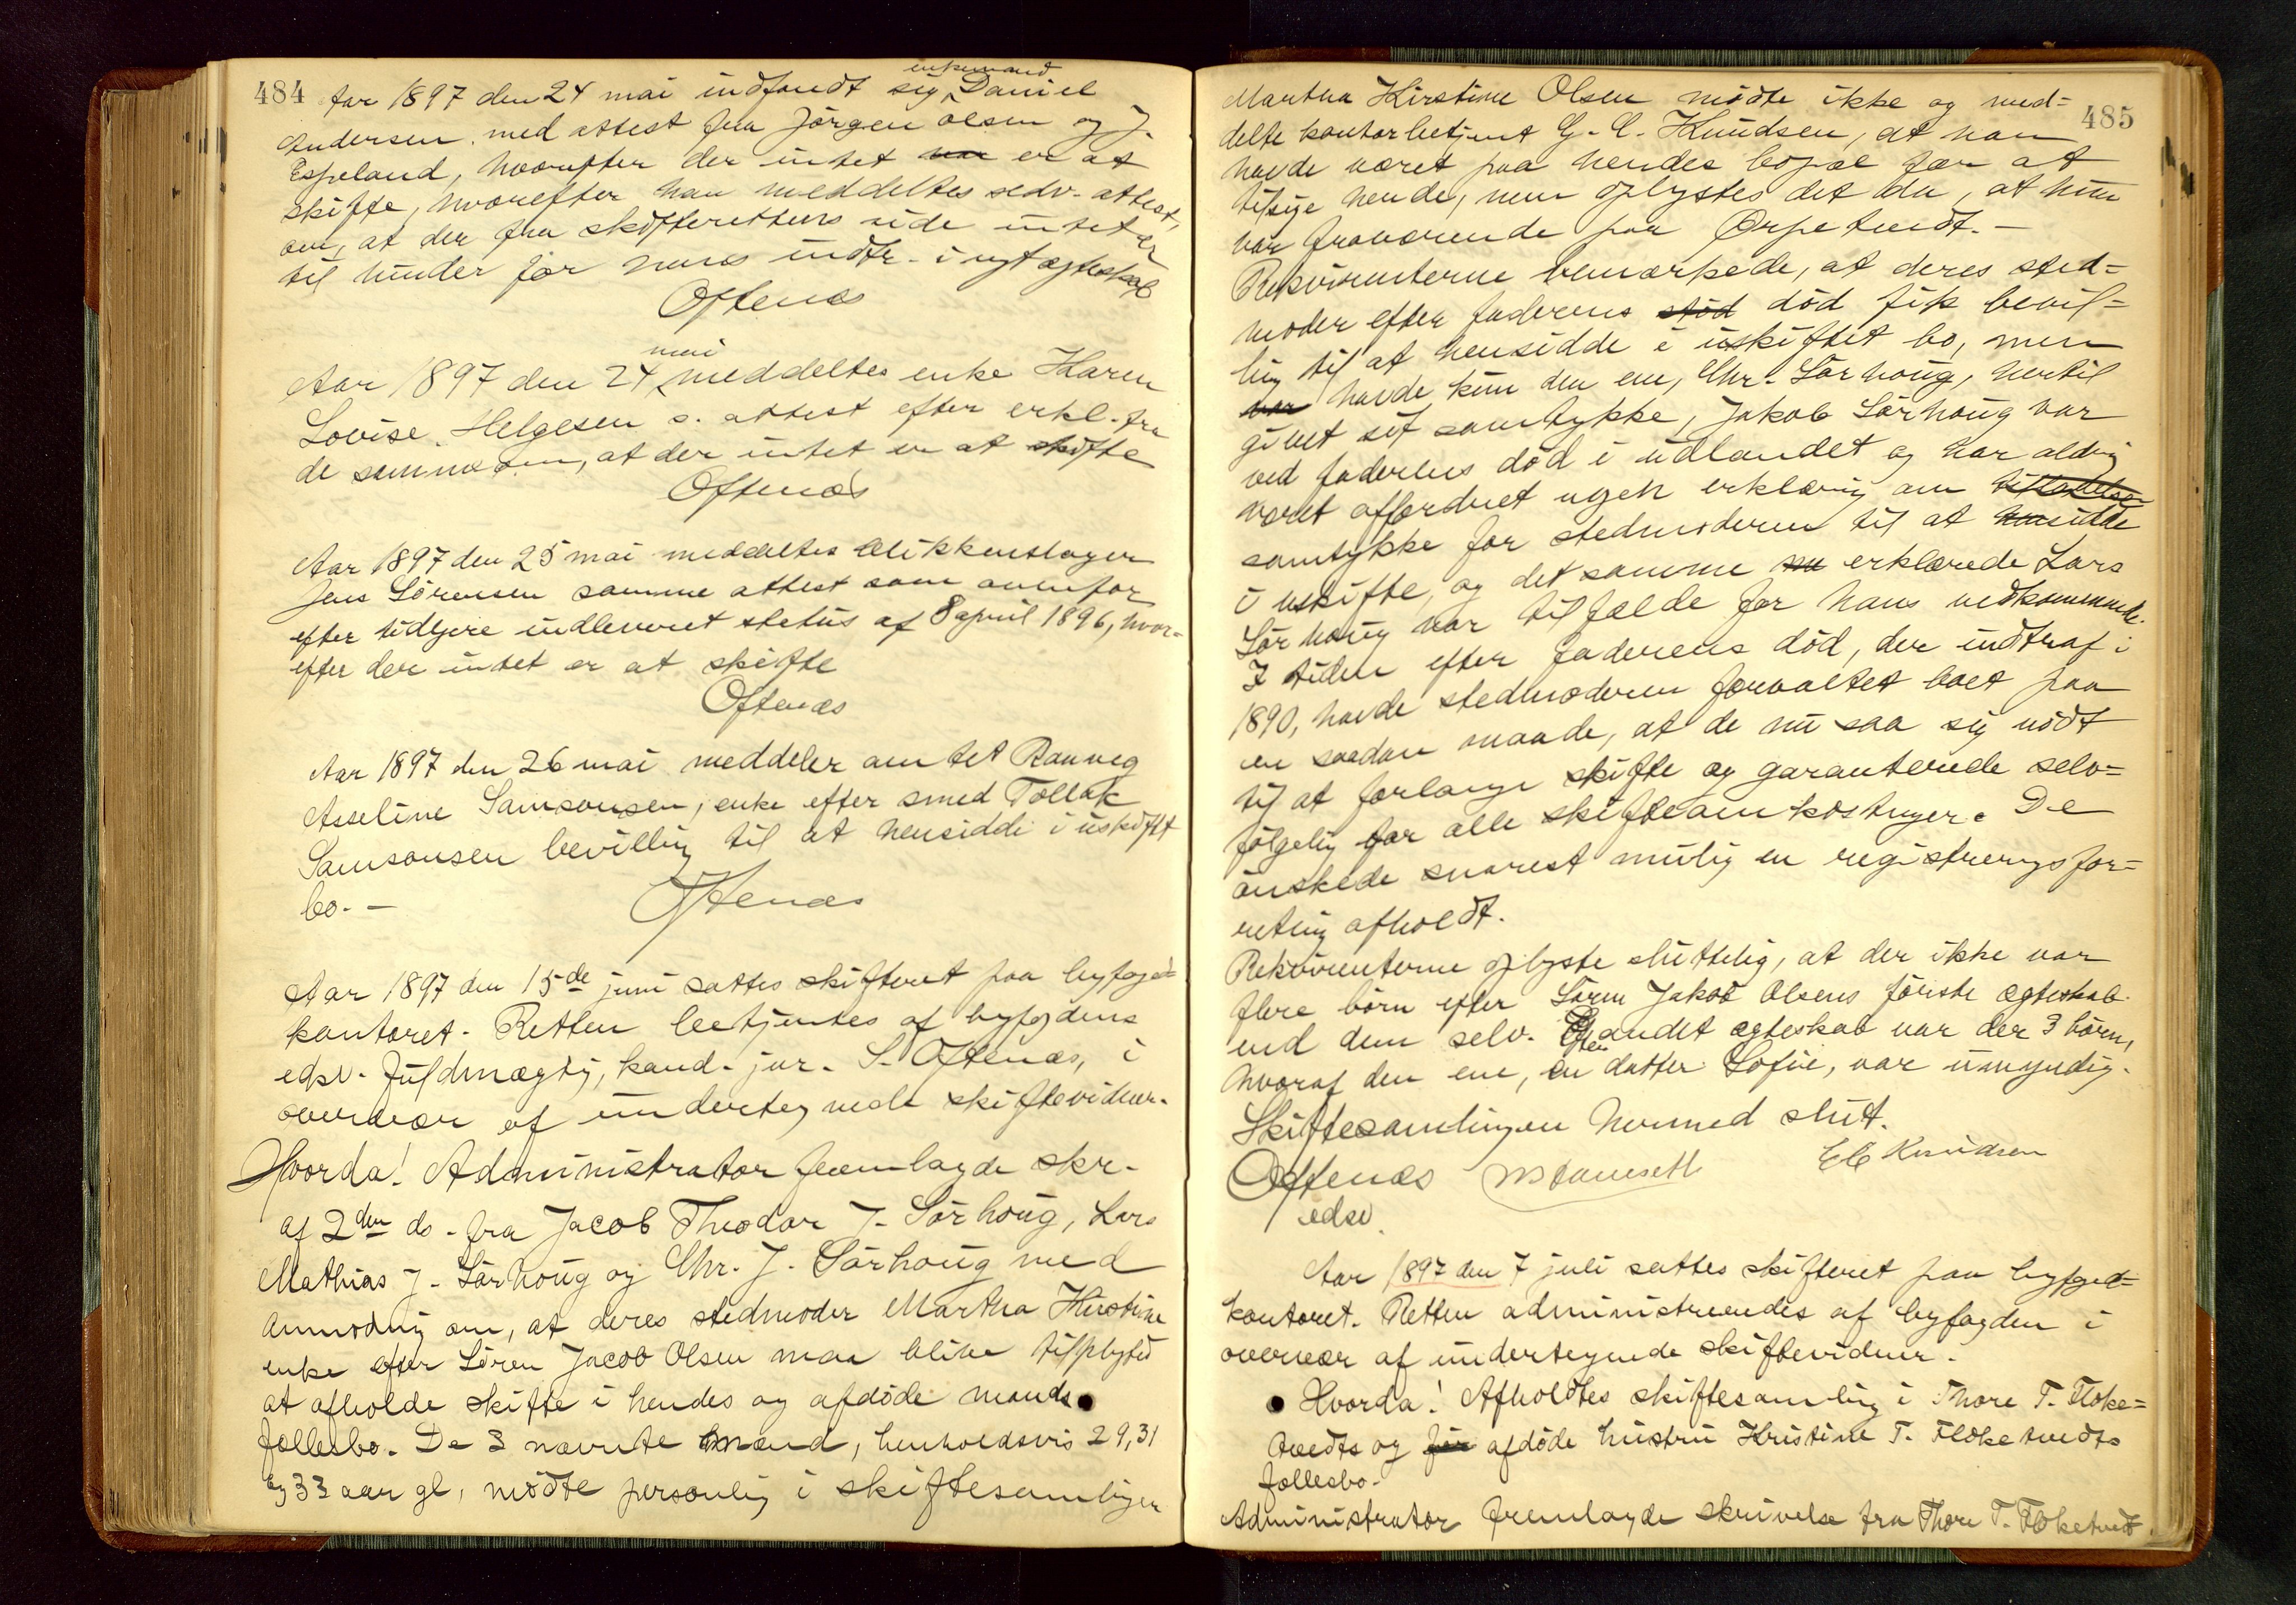 484
Aar 1897 den 24 mai indfandt sig enkemand Daniel
Andersen med attest fra Jörgen Olsen og J.
Espeland, hvorefter der intet var er at
skifte, hvorefter han meddeltes sedv. attest,
om, at der fra skifterettens side intet er
til hinder for hans indtr. i nyt ægteskab
Oftenæs
Aar 1897 den 24 mai meddeltes enke Karen
Lovise Helgesen s. attest efter erkl. fra
de samme om, at der intet er at skifte
Oftenæs
Aar 1897 den 25 mai meddeltes blikkenslager
Jens Sörensen samme attest som ovenfor
efter tidligere indleveret status af 8 april 1896, hvor=
efter der intet er at skifte
Oftenæs
Aar 1897 den 26 mai meddeler amtet Ranveg
Asseline Samsonsen, enke efter smed Tollak
Samsonsen bevilling til at hensidde i uskiftet
bo. —
Oftenæs
Aar 1897 den 15de juni sattes skifteret paa byfoged=
kontoret. Retten betjentes af byfogdens
edsv. fuldmægtig, kand. jur. S. Oftenæs, i
overvær af undertegnede skiftevidner.
Hvorda! Administrator fremlagde skr.
af 2den ds. fra Jacob Theodor J. Sörhoug, Lars
Mathias J. Sörhoug og Chr. J. Sörhoug med
anmodning om, at deres stedmoder Martha Kirstine
enke efter Sören Jacob Olsen maa blive tilpligtet
at afholde skifte i hendes og afdöde mands
fællesbo. De 3 nævnte mænd, henholdsvis 29, 31
og 33 aar gl, mödte personlig i skiftesamlingen
485
Martha Kirstine Olsen mödte ikke og med=
delte kontorbetjent G. C. Knudsen, at han
havde været paa hendes bopæl for at
tilsige hende, men oplystes det da, at hun
var fraværende paa Ørpetvedt. —
Rekvirenterne bemærkede, at deres sted=
moder efter faderens stöd död fik bevil=
ling til at hensidde i uskiftet bo, men
var havde kun den ene, Chr. Sörhoug, hertil
givet sit samtykke, Jakob Sörhoug var
ved faderens död i udlandet og har aldrig
været affordret nogen erklæring om tilladelse
samtykke for stedmoderen til at hensidde
i uskifte, og det samme erklærede Lars
Sörhoug var tilfælde for hans vedkommende.
I tiden efter faderens död, der indtraf i
1890, havde stedmoderen forvaltet boet paa
en saadan maade, at de nu saa sig nödt
til at forlange skifte og garanterede selv=
fölgelig for alle skifteomkostninger. De
önskede snarest mulig en registreringsfor=
retning afholdt.
Rekvirenterne oplyste sluttelig, at der ikke var
flere börn efter Sören Jakob Olsens förste ægteskab
end dem selv. Efter andet ægteskab var der 3 börn,
hvoraf den ene, en datter Sofie, var umyndig.
Skiftesamlingen hermed slut.
Oftenæs
edsv.
Knudsen
Aar 1897 den 7 juli sattes skifteret paa byfged=
kontoret. Retten administreredes af byfogden i
overvær af undertegnede skiftevidner.
Hvorda! Afholdtes skiftesamling i Thore T. Floke=
tvedts og för afdöde hustru Kristine T. Floketvedts
fællesbo.
Administrator fremlagde skrivelse fra Thore T. Floketvedt